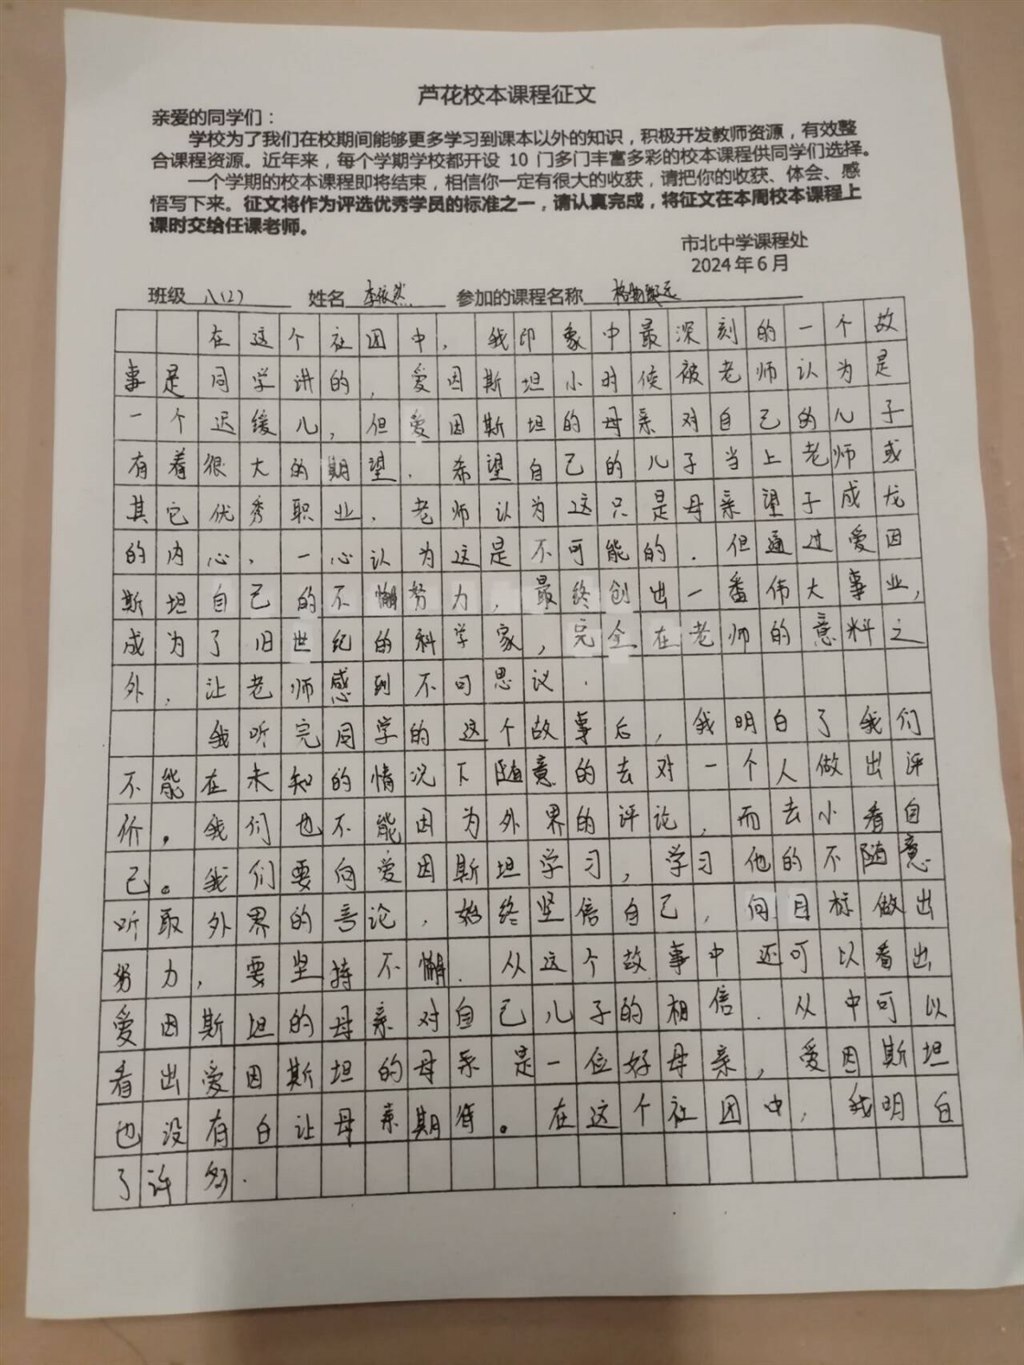 芦花校本课程征文
亲爱的同学们：
学校为了我们在校期间能够更多学习到课本以外的知识，积极开发教师资源，有效整
合课程资源。近年来，每个学期学校都开设 10 门多门丰富多彩的校本课程供同学们选择。
一个学期的校本课程即将结束，相信你一定有很大的收获，请把你的收获、体会、感
悟写下来。征文将作为评选优秀学员的标准之一，请认真完成，将征文在本周校本课程上
课时交给任课老师。
市北中学课程处
2024 年 6 月
班级 八(2) 姓名 李依然 参加的课程名称
在这个社团中，我印象中最深刻的一个故
事是同学讲的，爱因斯坦小时候被老师认为是
一个迟缓儿，但爱因斯坦的母亲对自己的儿子
有着很大的期望．希望自己的儿子当上老师或
其它优秀职业．老师认为这只是母亲望子成龙
的内心，一心认为这是不可能的．但通过爱因
斯坦自己的不懈努力，最终创出一番伟大事业，
成为了旧世纪的科学家，完全在老师的意料之
外，让老师感到不可思议．
我听完同学的这个故事后，我明白了我们
不能在未知的情况下随意的去对一个人做出评
价。我们也不能因为外界的评论，而去小看自
己。我们要向爱因斯坦学习，学习他的不随意
听取外界的言论，始终坚信自己，向目标做出
努力，要坚持不懈．从这个故事中还可以看出
爱因斯坦的母亲对自己儿子的相信．从中可以
看出爱因斯坦的母亲是一位好母亲，爱因斯坦
也没有白让母亲期待。在这个社团中，我明白
了许多．